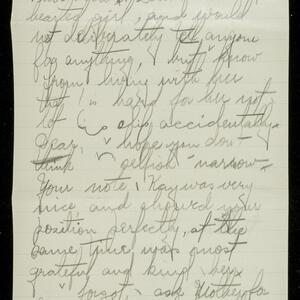 hearted girl, and would
not deliberately tell anyone
for anything, but know
from home with her
that is hard for her not
to accidentally
Dear, hope you don't
think selfish narrow-
Your note, Kay was very
nice and showed your
position perfectly, at the
same time was most
grateful and kind
forgot, ask Mother for